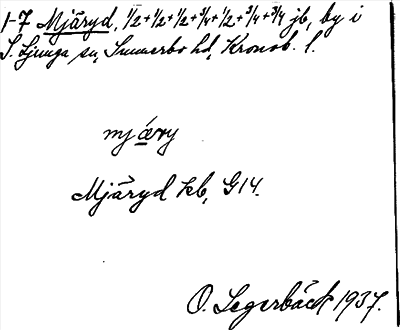 1-7 Mjäryd, 1/2+1/2+1/2+3/4+1/2+3/4+3/4 jb, by i
S. Ljunga sn, Sunnerbo hd, Kronob. l.
mjǽry
Mjäryd kb, G14.
O. Segerbäck 1937.